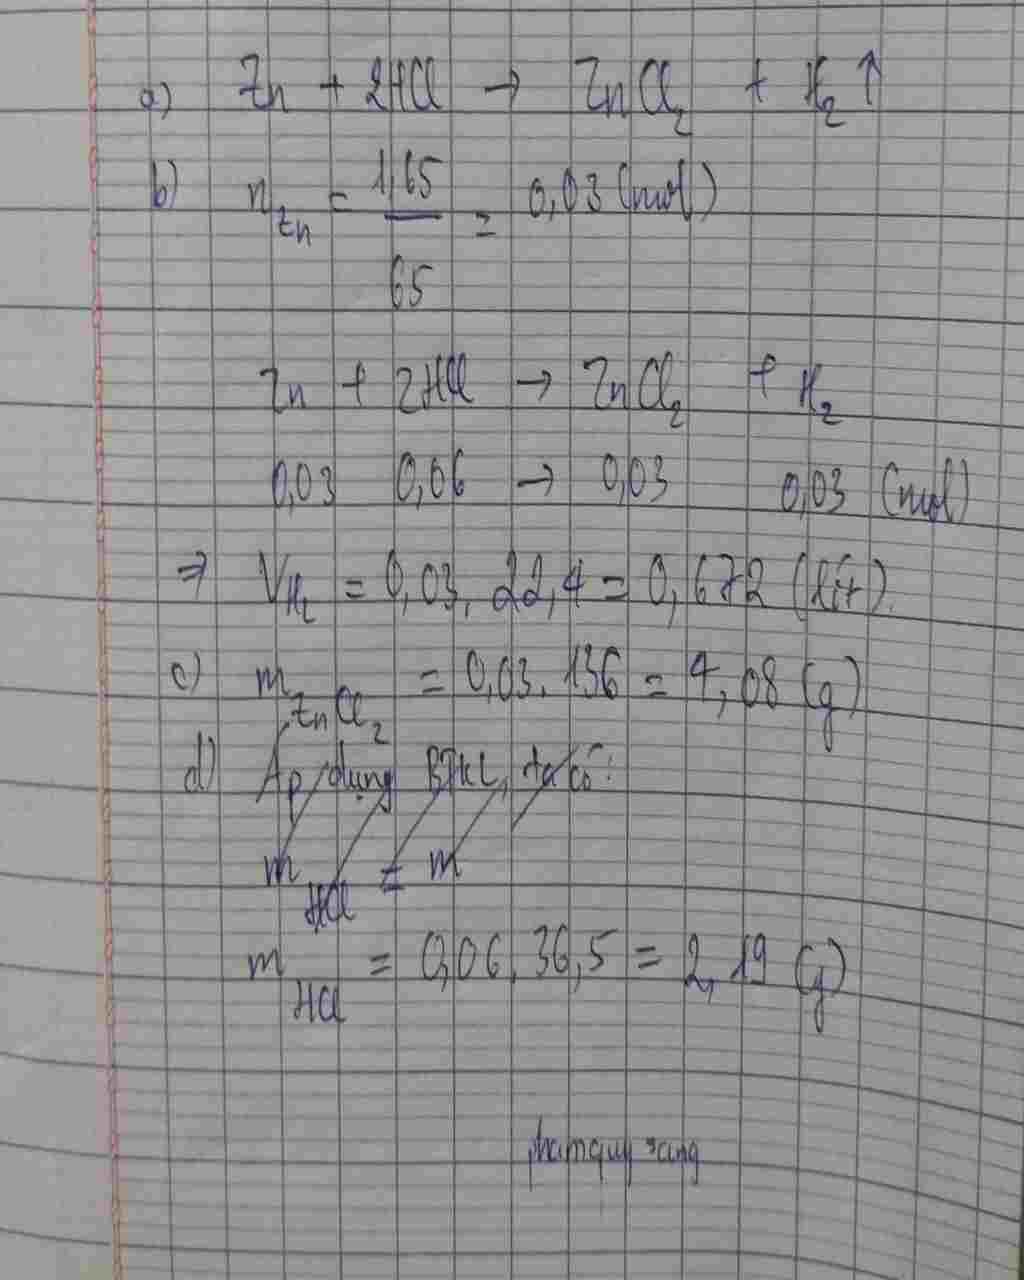 a) Zn + 2HCl → ZnCl₂ + H₂ ↑
b) n_Zn = 1,65 / 65 = 0,03 (mol)
Zn + 2HCl → ZnCl₂ + H₂
0,03 0,06 → 0,03 0,03 (mol)
⇒ V_H₂ = 0,03 . 22,4 = 0,672 (lít).
c) m_ZnCl₂ = 0,03 . 136 = 4,08 (g)
d) Áp dụng BTKL, ta có:
m_HCl = m
m_HCl = 0,06 . 36,5 = 2,19 (g)
phamquy sang